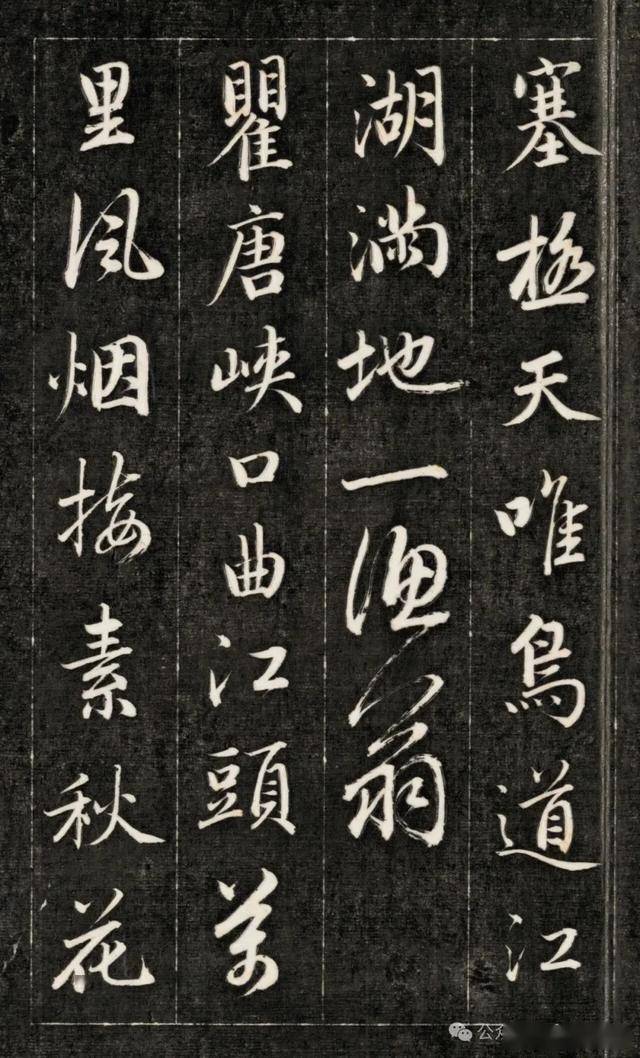 塞極天唯鳥道江
湖滿地一漁翁
瞿唐峽口曲江頭萬
里風烟接素秋花
公众